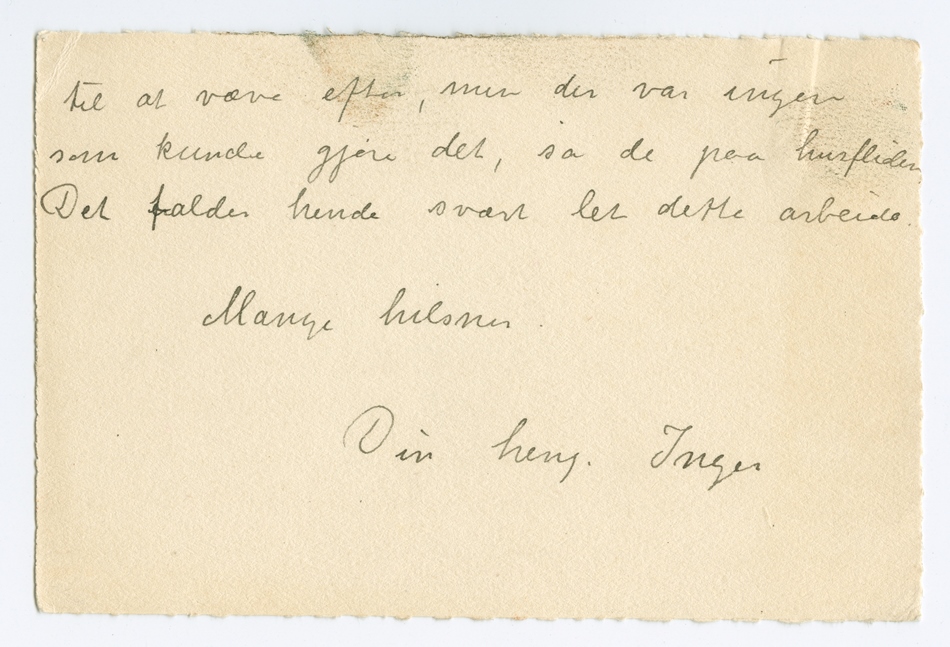 til at væve efter, men der var ingen
som kunde gjøre det, sa de paa husfliden
Det falder hende svært let dette arbeide.
Mange hilsner.
Din heng. Inger